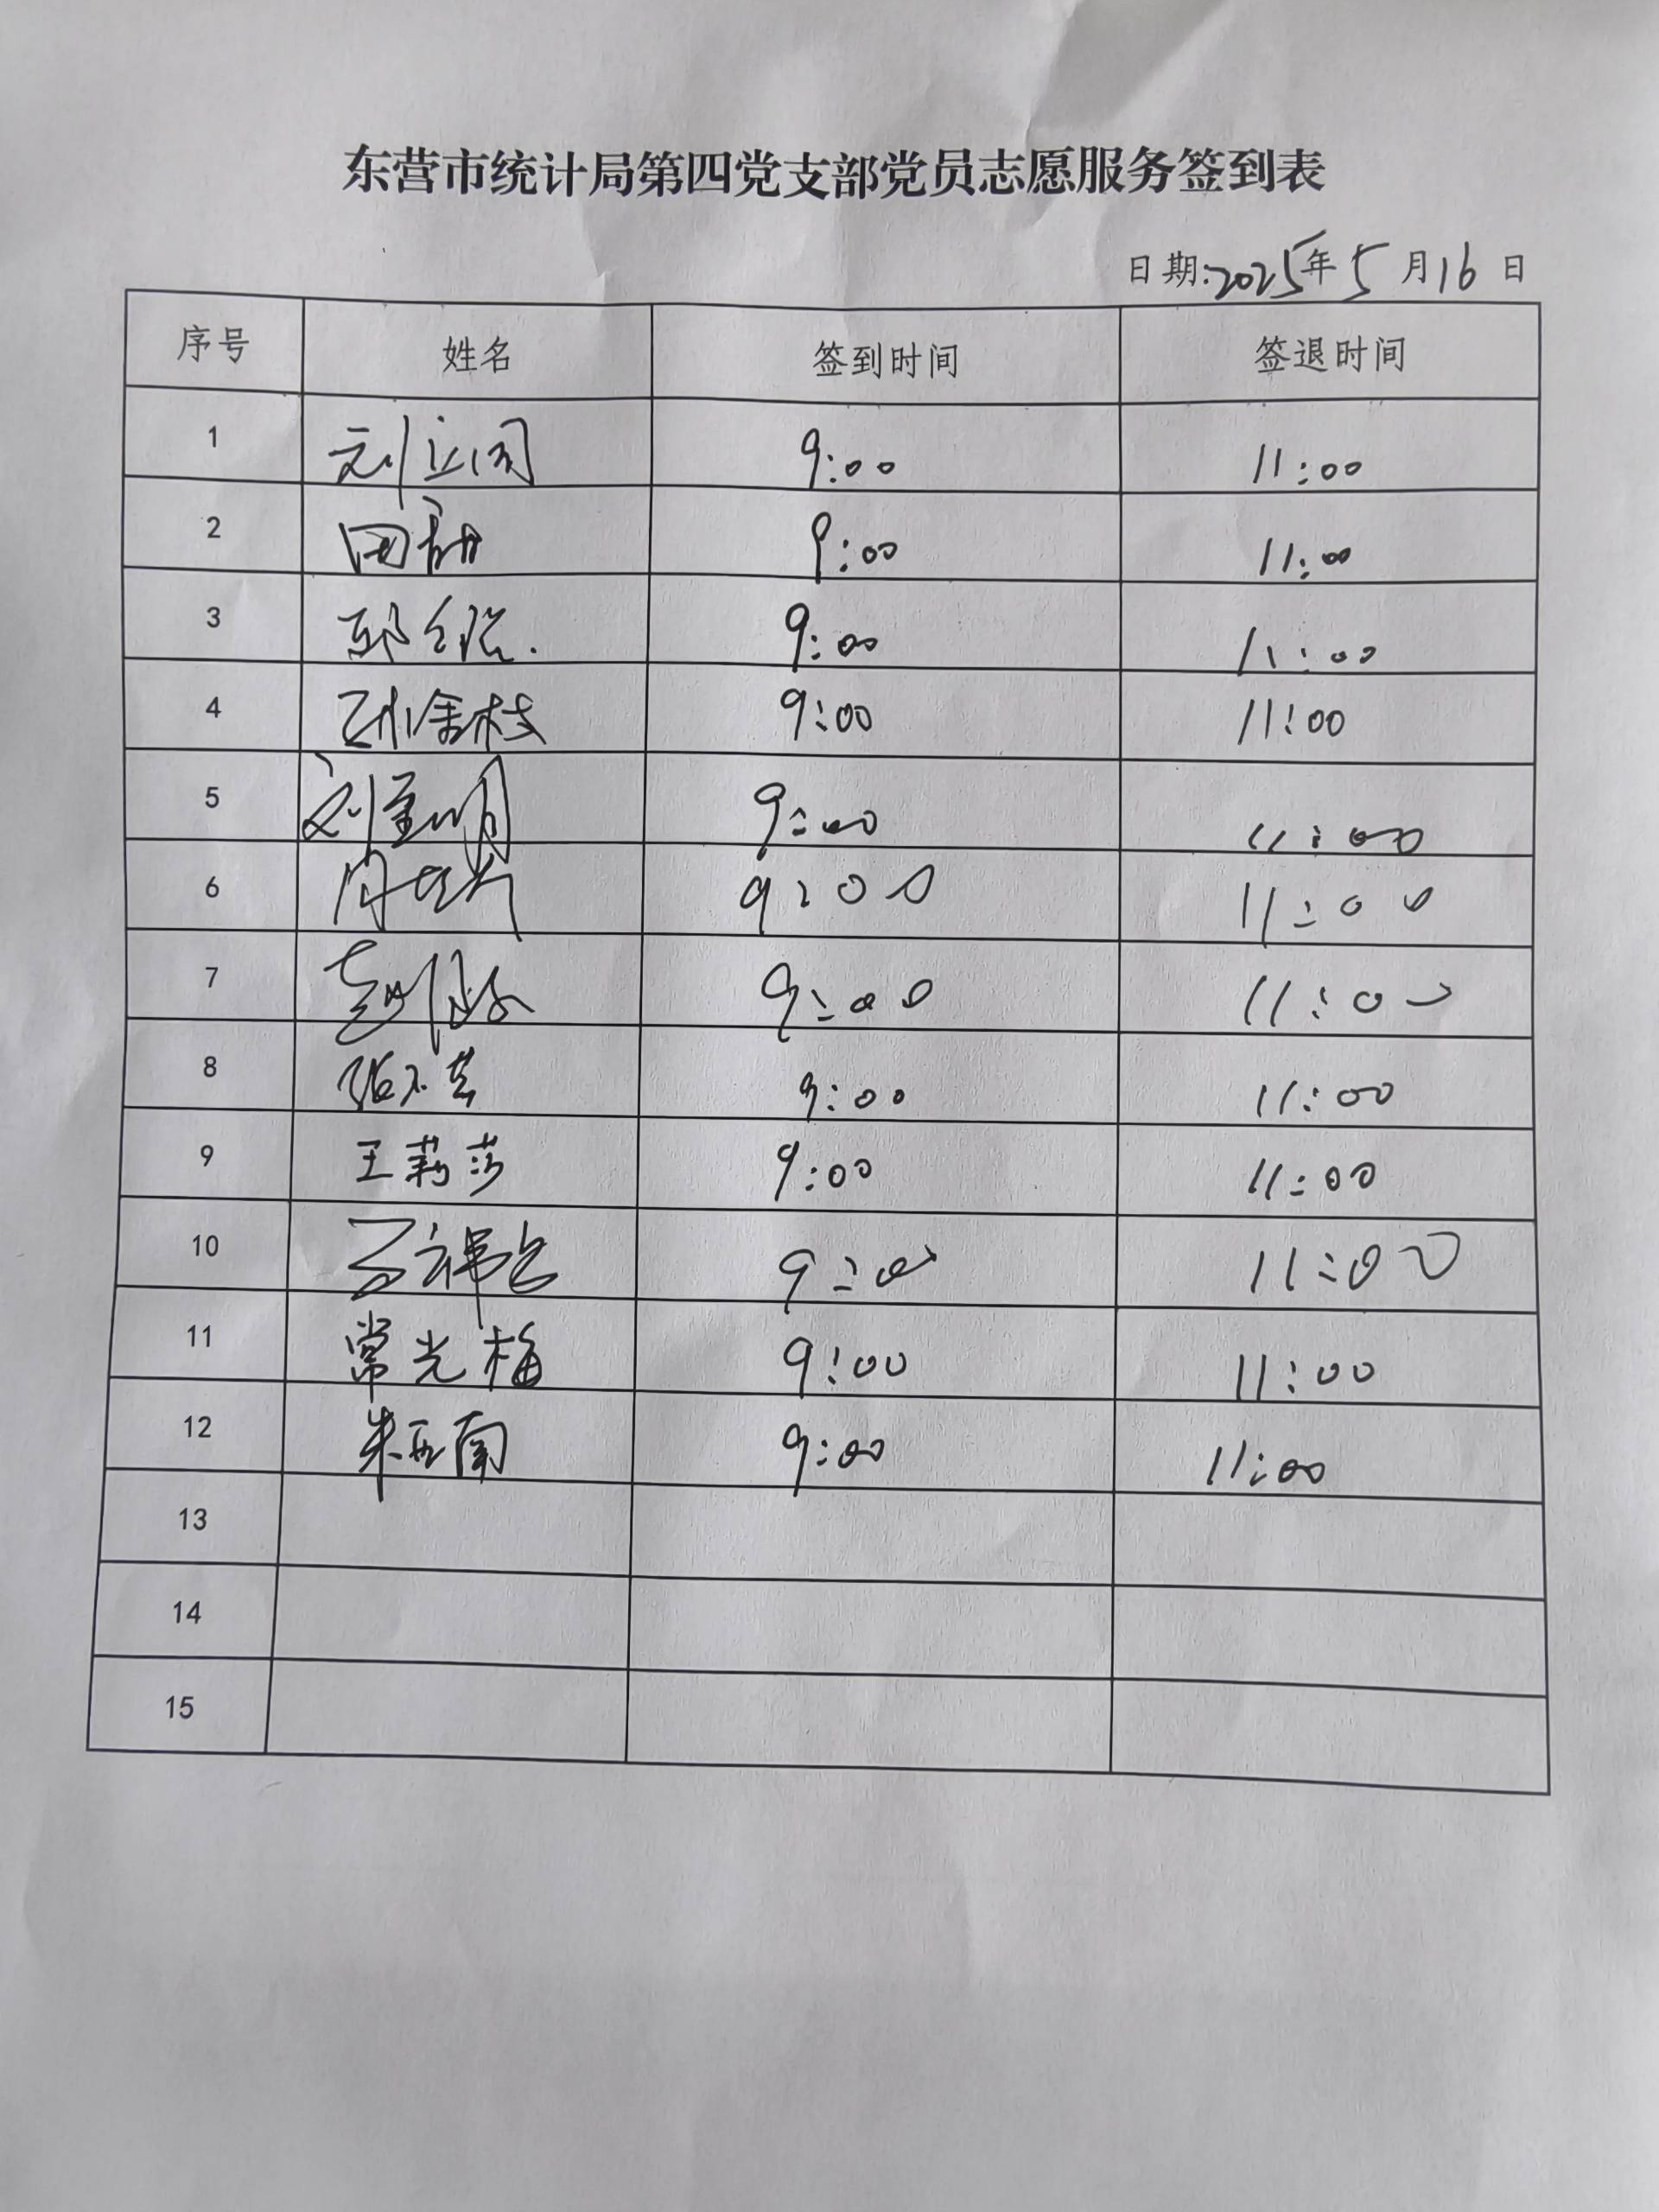 东营市统计局第四党支部党员志愿服务签到表
日期:2025年5月16日
序号 姓名 签到时间 签退时间
1 9:00 11:00
2 9:00 11:00
3 9:00 11:00
4 孙金枝 9:00 11:00
5 9:00 11:00
6 9:00 11:00
7 9:00 11:00
8 9:00 11:00
9 王莉莎 9:00 11:00
10 9:00 11:00
11 常光梅 9:00 11:00
12 朱亚南 9:00 11:00
13
14
15